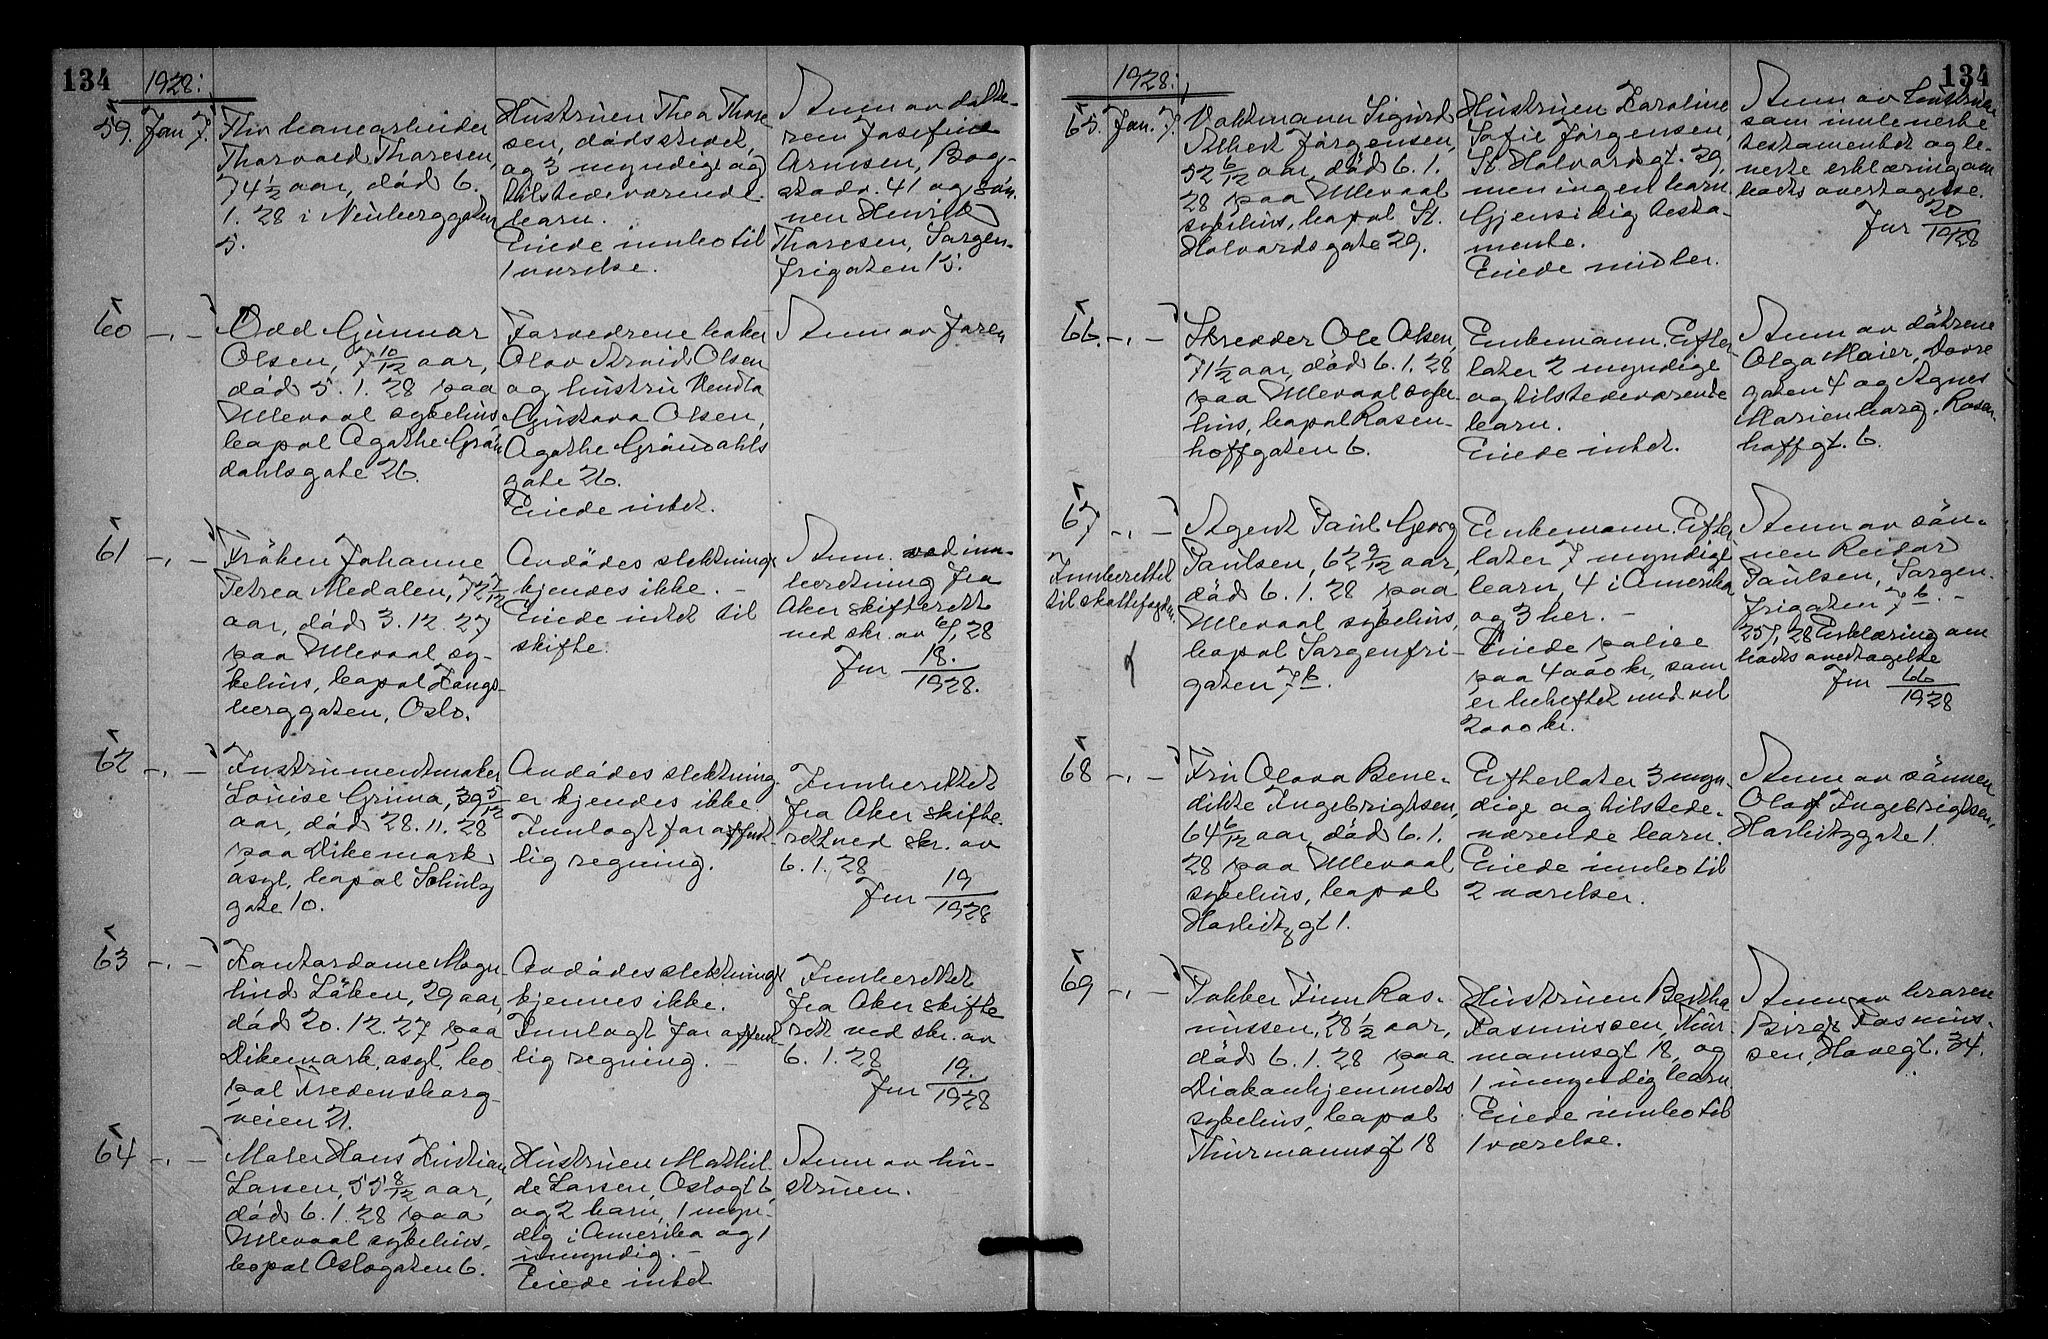 134
1928:
59. Jan 7.
Thorvald Thoresen,
74 1/2 aar, död 6.
1. 28 i Neuberggaten
5.
Hustruen Thea Thore
sen, dödsstedet,
og 3 myndige og
tilstedeværende
barn.
Eiede innbo til
1 værelse.
Anm av datte-
ren Josefine
Arnesen, Bog-
stadv. 41 og sön-
nen Henrik
Thoresen, Sorgen-
frigaten 15.
60 -,,-
Odd Gunnar
Olsen, 7 10/12 aar,
död 5. 1. 28 paa
Ullevaal sykehus
bopal Agathe Grön
dahlsgate 26.
Forældrene baker
Olav Arvid Olsen
og hustru Vendla
Gustava Olsen,
Agathe Gröndahls
gate 26.
Eiede intet.
Anm av faren
61 -,,-
Fröken Johanne
Petrea Medalen, 72 7/12
aar, död 3. 12. 27
paa Ullevaal sy-
kehus, bopal Kongs-
berggaten, Oslo.
Avdödes slektninge
kjendes ikke. -
Eiede intet til
skifte.
Anm. ved inn-
beretning fra
Aker skifterett
ved skr. av 6/1 28
Jnr 18./1928.
62 -,,-
Instrumentmaker
Louise Grima, 39 5/12
aar, död 28. 11. 28
paa Dikemark
asyl, bopal Schultz
gate 10.
Avdödes slektning
er kjendes ikke
Innlagt for offent-
lig regning.
Innberettet
fra Aker skifte-
rett ved skr. av
6. 1. 28
Jnr 19/1928
63 -,,-
Kontordame Magn-
hild Löken, 29 aar,
död 20. 12. 27 paa
Dikemark asyl, bo-
pal Fredensborg-
veien 21.
Avdödes slektninge
kjennes ikke.
Innlagt for offent-
lig regning. -
Innberettet
fra Aker skifte
rett ved skr. av
6. 1. 28
Jnr 19./1928
64 -,,-
Maler Hans Kristian
Larsen, 55 8/12 aar,
död 6. 1. 28 paa
Ullevaal sykehus,
bopal Oslogaten 6.
Hustruen Mathil-
de Larsen, Oslogt 6,
og 2 barn, 1 myn-
dig i Amerika og 1
umyndig. -
Eiede intet
Anm av hu-
struen.
1928:
134
65. Jan. 7.
Vaktmann Sigurd
Jörgensen,
52 6/12 aar, död 6. 1.
28 paa Ullevaal
sykehus, bopal St.
Halvardsgate 29.
Hustruen Karoline
Sofie Jörgensen,
St. Halvardsgt. 29,
men ingen barn
Gjensidig testa-
mente.
Eiede midler.
Anm av hustruen
som innleverte
testamentet og le-
verte erklæring om
boets overtagelse.
Jnr 20/1928
66. -,,-
Skredder Ole Olsen,
71 1/2 aar, död 6. 1. 28
paa Ullevaal syke-
hus, bopal Rosen-
hoffgaten 6.
Enkemann. Efter-
later 2 myndige
og tilstedeværende
barn.
Eiede intet.
Anm av dötrene
Olga Maier, Dovre
gaten 4 og Agnes
Marienborg, Rosen-
hoffgt. 6.
67 -,,-
Innberettet
til skattefogden.
Agent Paul Georg
Paulsen, 62 9/12 aar,
död 6. 1. 28 paa
Ullevaal sykehus,
bopal Sorgenfri-
gaten 7 b.
Enkemann. Efter
later 7 myndige
barn, 4 i Amerika
og 3 her. -
Eiede polise
paa 4000 kr, som
er beheftet med vel
2000 kr.
Anm av sön-
nen Reidar
Paulsen, Sorgen-
frigaten 7 b. -
25/1 28 Erklæring om
boets overtagelse
Jnr 66/1928
68 -,,-
Fru Olava Bene-
dikte Ingebrigtsen,
64 6/12 aar, död 6. 1.
28 paa Ullevaal
sykehus, bopal
Harbitzgt 1.
Efterlater 3 myn-
dige og tilstede-
værende barn.
Eiede innbo til
2 værelser.
Anm av sönnen
Olaf Ingebrigtsen,
Harbitzgate 1.
69 -,,-
Pakker Finn Ras-
mussen, 28 1/2 aar,
död 6. 1. 28 paa
Diakonhjemmets
sykehus, bopal
Thurmannsgt 18
Hustruen Bertha
Rasmussen, Thur-
mannsgt 18, og
1 umyndig barn.
Eiede innbo til
1 værelse.
Anm av broren
Birger Rasmus-
sen, Hovegt. 34.